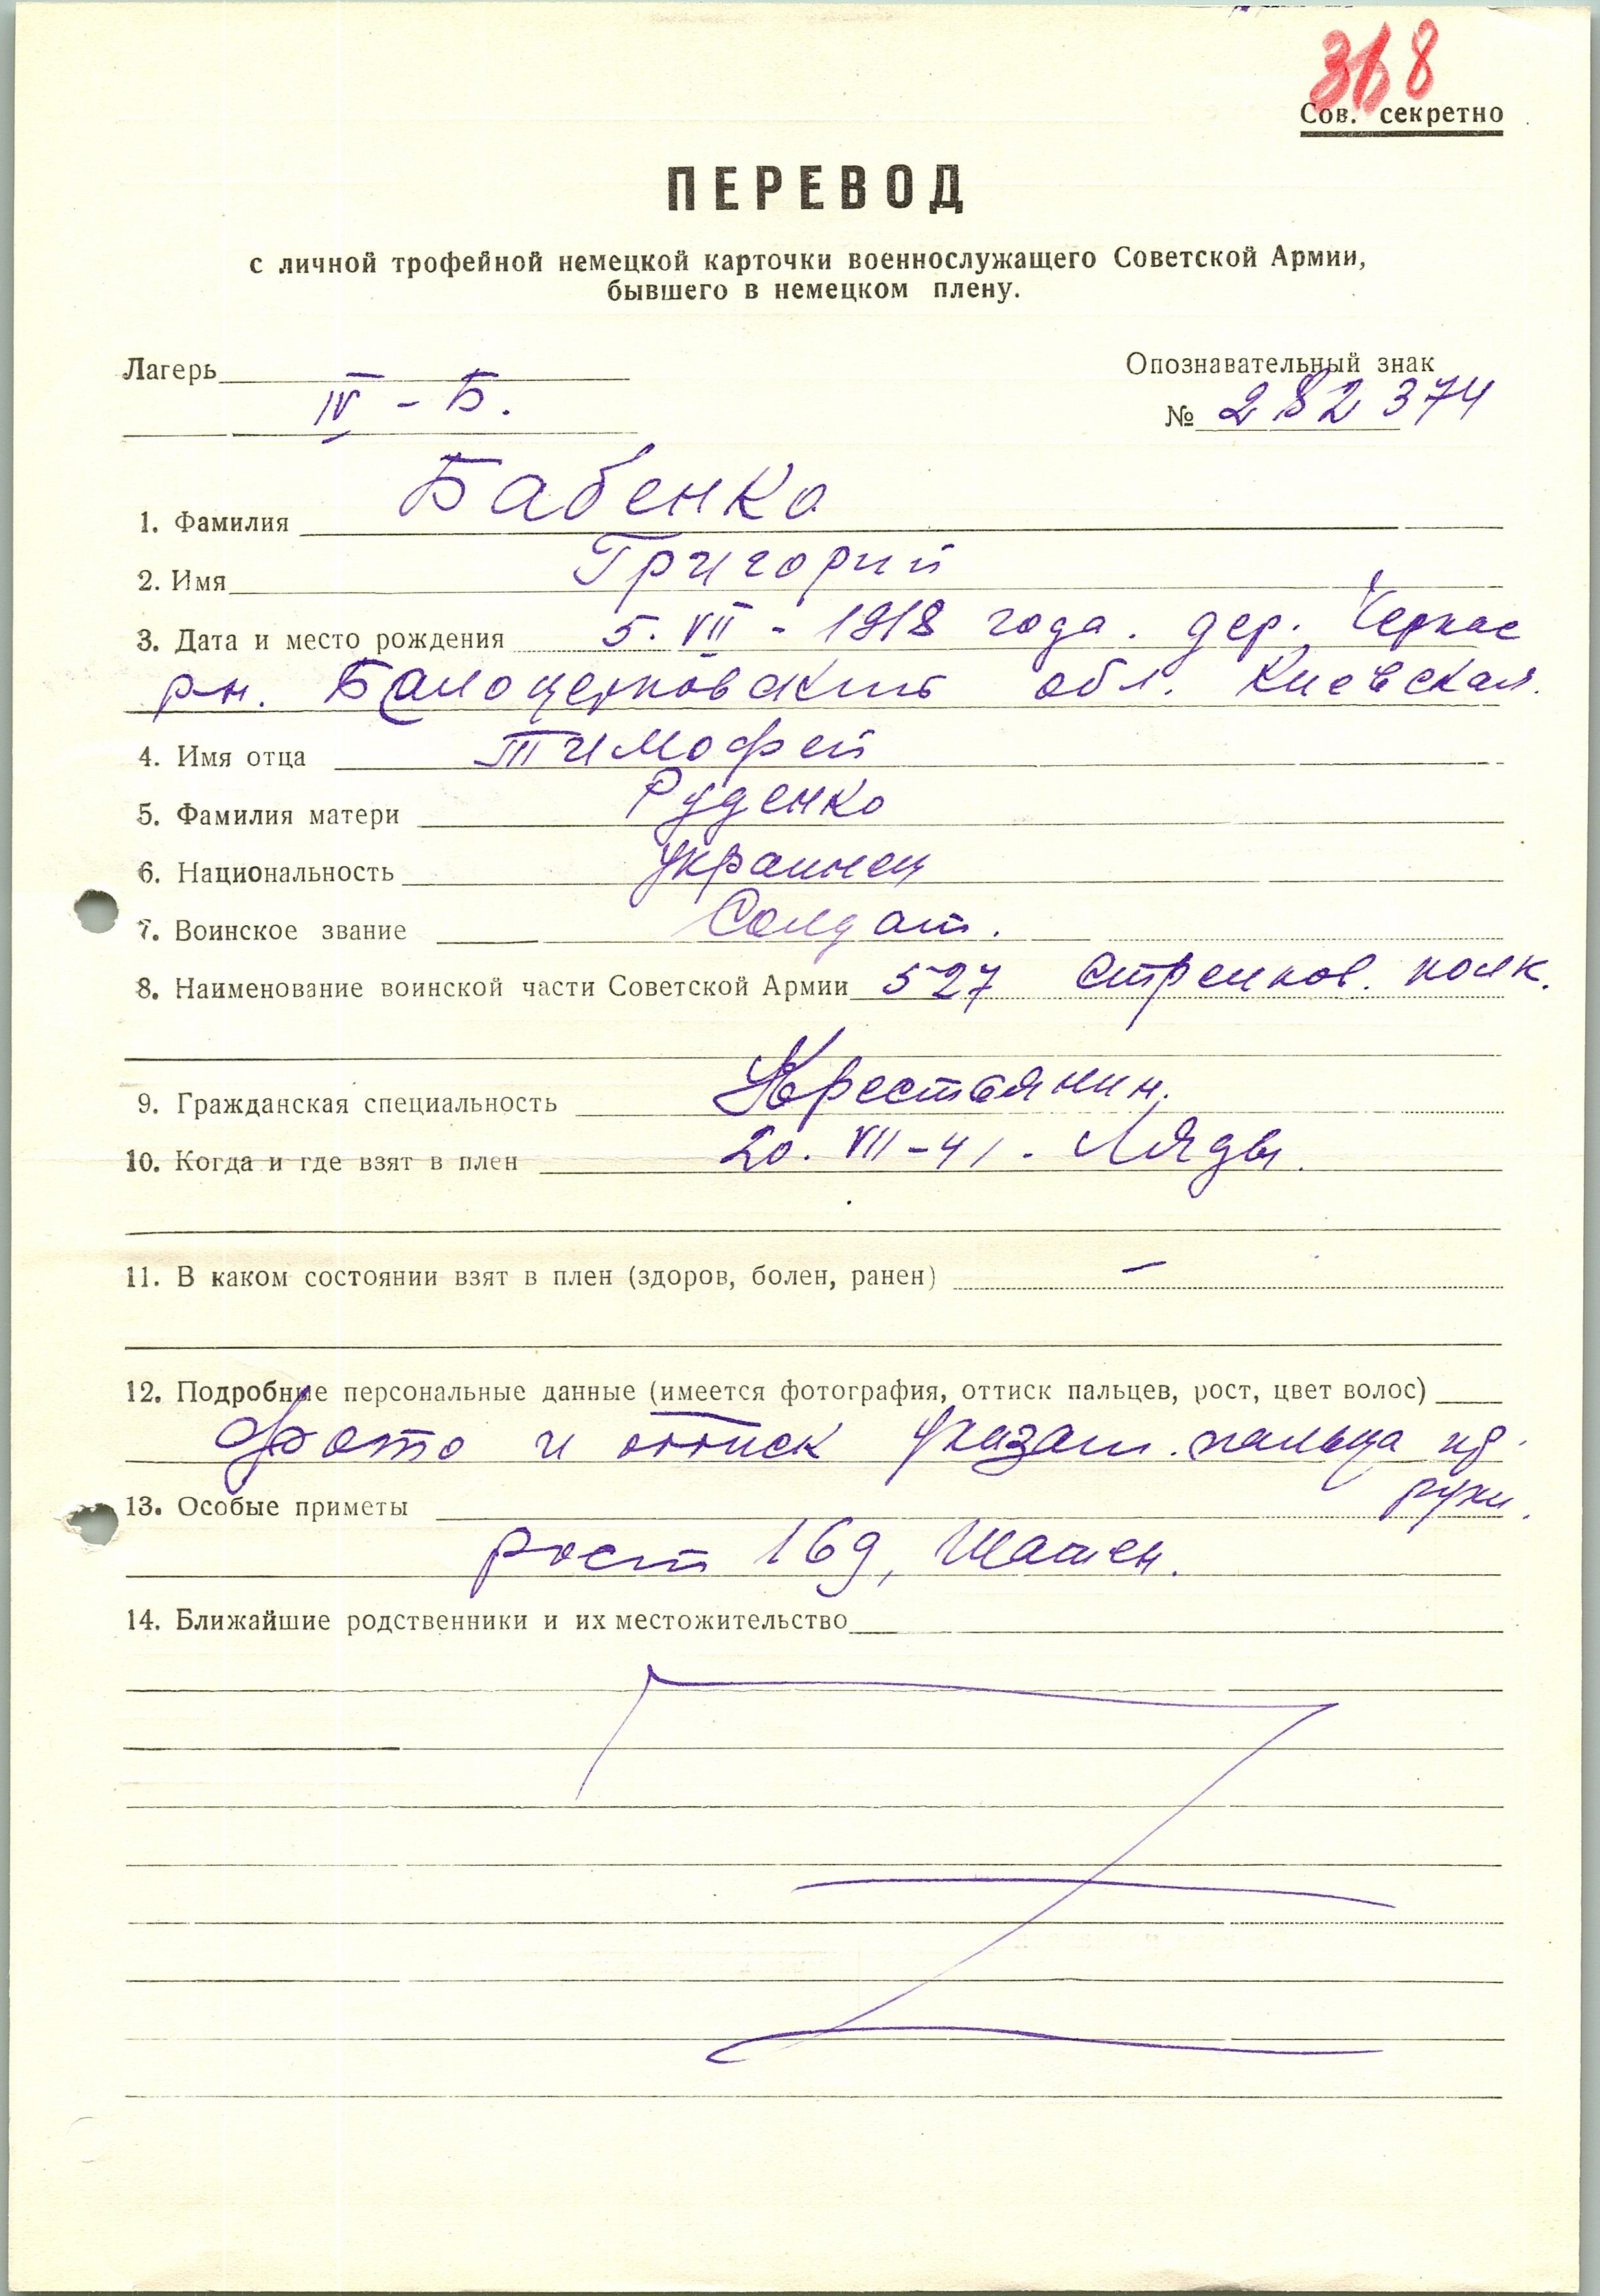 318
Сов. секретно
ПЕРЕВОД
с личной трофейной немецкой карточки военнослужащего Советской Армии,
бывшего в немецком плену.
Лагерь IV - Б.
Опознавательный знак
№ 282374
1. Фамилия Бабенко
2. Имя Григорий
3. Дата и место рождения 5. VII - 1918 года. дер. Черкас
рн. Балоцерковский обл. Киевская.
4. Имя отца Тимофей
5. Фамилия матери Руденко
6. Национальность украинец
7. Воинское звание Солдат.
8. Наименование воинской части Советской Армии 527 Стрелков. полк.
9. Гражданская специальность Крестьянин.
10. Когда и где взят в плен 20. VII - 41. Ляды.
11. В каком состоянии взят в плен (здоров, болен, ранен) –
12. Подробные персональные данные (имеется фотография, оттиск пальцев, рост, цвет волос)
Фото и оттиск указат. пальца пр.
руки.
13. Особые приметы
рост 169, Шатен.
14. Ближайшие родственники и их местожительство